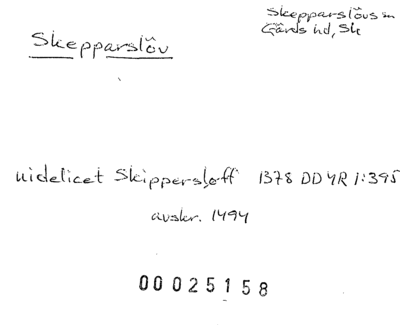 Skepparslöv
Skepparslövs sn
Gärds hd, Sk
uidelicet Skippersloff 1378 DD4R 1:395
avskr. 1494
00025158